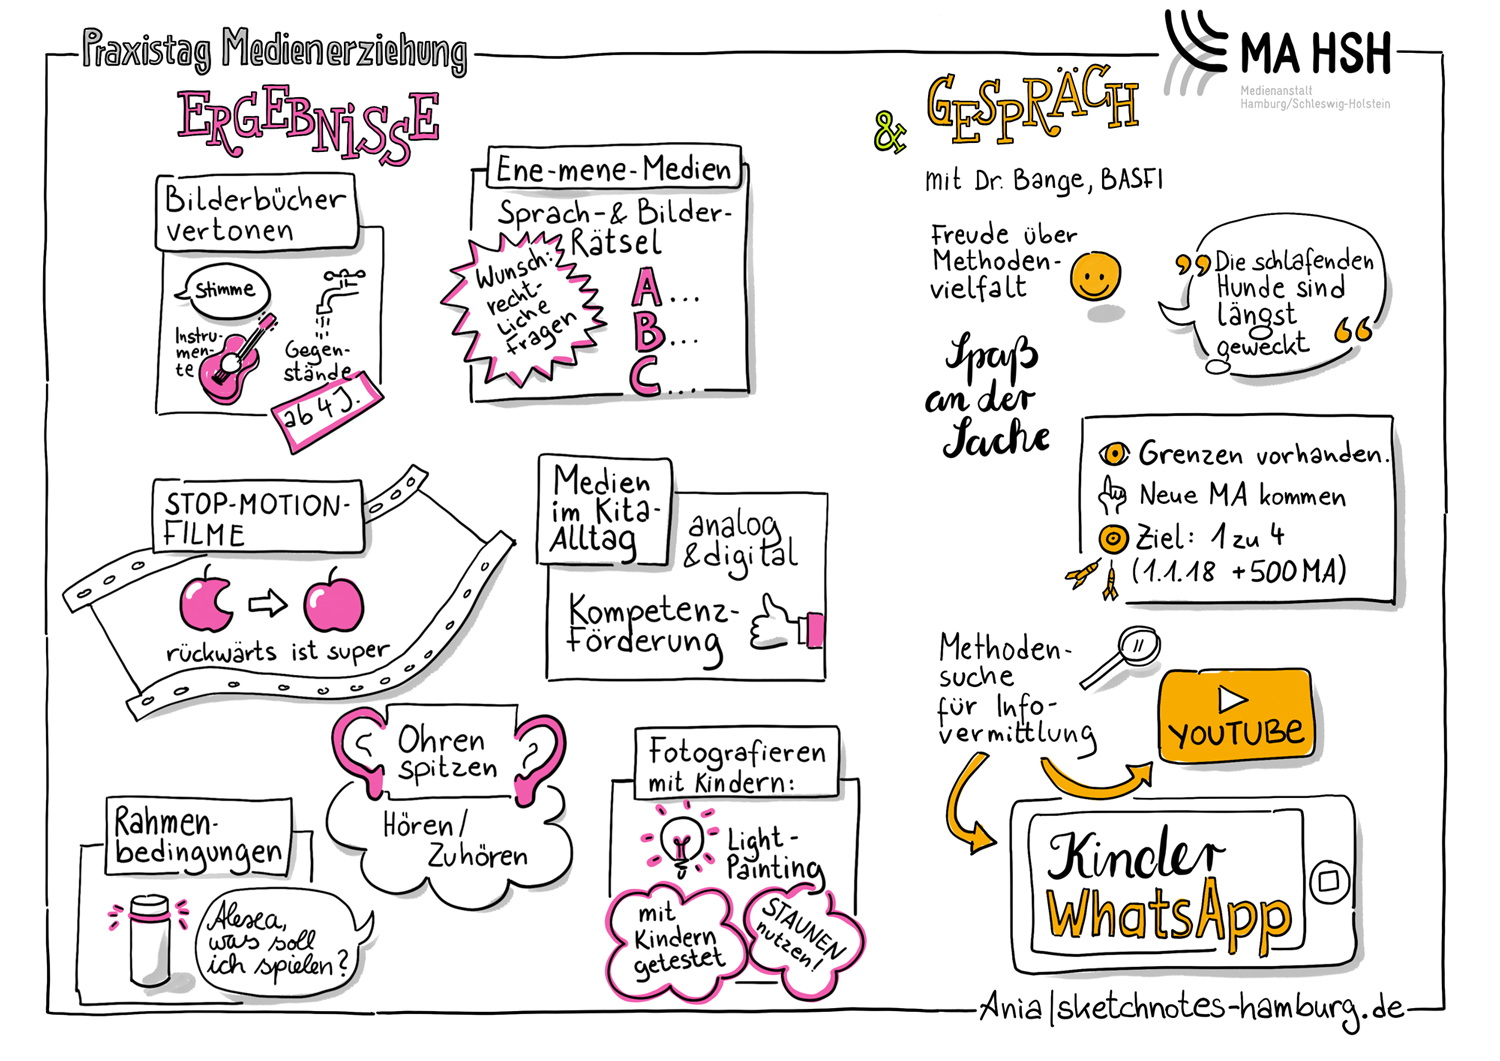 Praxistag Medienerziehung
MA HSH
Medienanstalt
Hamburg/Schleswig-Holstein
ERGEBNiSSE
& GESPRÄCH
Bilderbücher
vertonen
Stimme
Instru-
men-
te
Gegen-
stände
ab 4 J.
Ene-mene-Medien
Sprach-& Bilder-
Rätsel
Wunsch:
recht-
liche
Fragen
A...
B...
C...
STOP-MOTION-
FILME
rückwärts ist super
Medien
im Kita-
Alltag
analog
& digital
Kompetenz-
Förderung
Ohren
spitzen
Hören/
Zuhören
Rahmen-
bedingungen
Alexa,
was soll
ich spielen?
Fotografieren
mit Kindern:
Light-
Painting
mit
Kindern
getestet
STAUNEN
nutzen!
mit Dr. Bange, BASFI
Freude über
Methoden-
vielfalt
„Die schlafenden
Hunde sind
längst
geweckt“
Spaß
an der
Sache
Grenzen vorhanden.
Neue MA kommen
Ziel: 1 zu 4
(1.1.18 +500 MA)
Methoden-
suche
für Info-
vermittlung
YOUTUBE
Kinder
WhatsApp
Ania|sketchnotes-hamburg.de